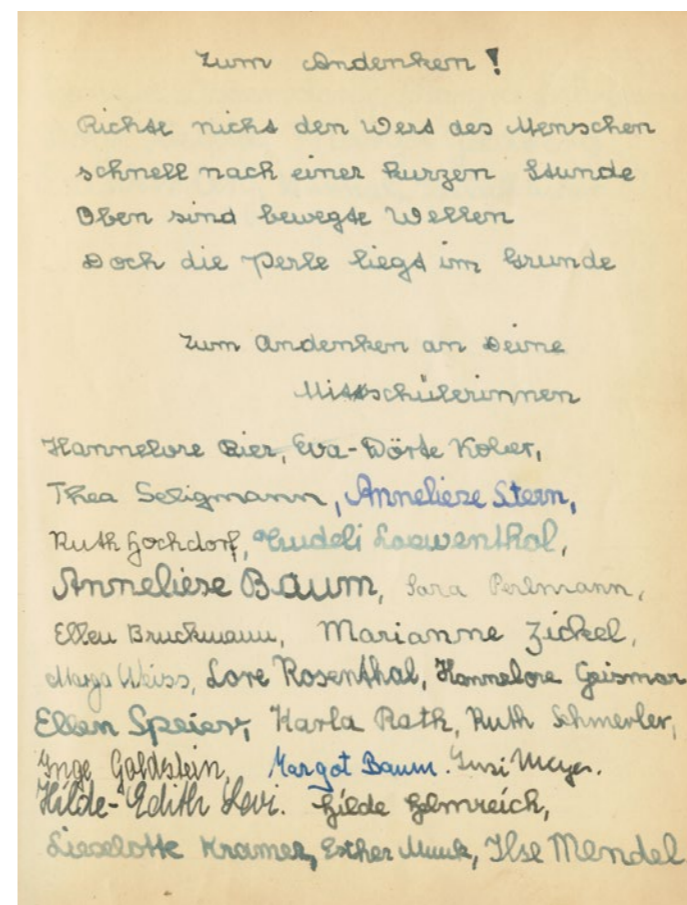 Zum Andenken!
Richte nicht den Wert des Menschen
schnell nach einer kurzen Stunde
Oben sind bewegte Wellen
Doch die Perle liegt im Grunde
Zum Andenken an Deine
Mitschülerinnen
Hannelore Bier, Eva-Dörte Kober,
Thea Seligmann, Anneliese Stern,
Ruth Hochdorf, Trudeli Loewenthal,
Anneliese Baum, Sara Perlmann,
Ellen Bruckmann, Marianne Zickel,
Marga Weiss, Lore Rosenthal, Hannelore Geismar
Ellen Speier, Karla Rath, Ruth Schmerler,
Inge Goldstein, Margot Baum. Susi Meyer.
Hilde-Edith Levi. Hilde Helmreich,
Lieselotte Kramer, Esther Munk, Ilse Mendel